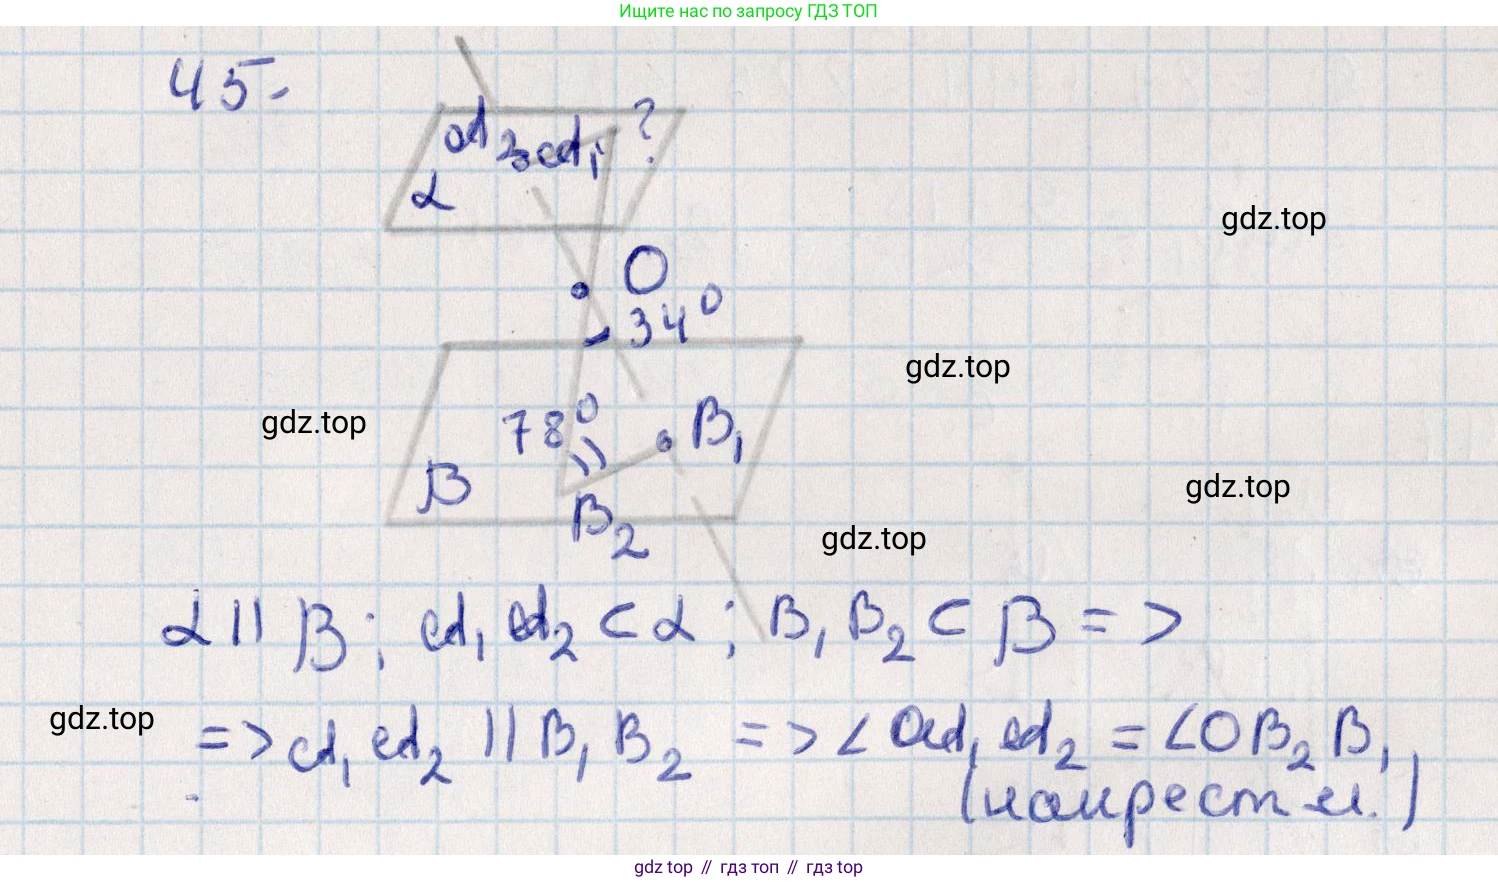 Ищите нас по запросу ГДЗ ТОП
45.
A₂ A₁ ?
α
gdz.top
O
34°
gdz.top
78° B₁
gdz.top
β
gdz.top
B₂
gdz.top
α || β; A₁A₂ ⊂ α; B₁B₂ ⊂ β =>
gdz.top
=> A₁A₂ || B₁B₂ => ∠OA₁A₂ = ∠OB₂B₁,
(накрест л.)
gdz top // гдз топ // гдз top